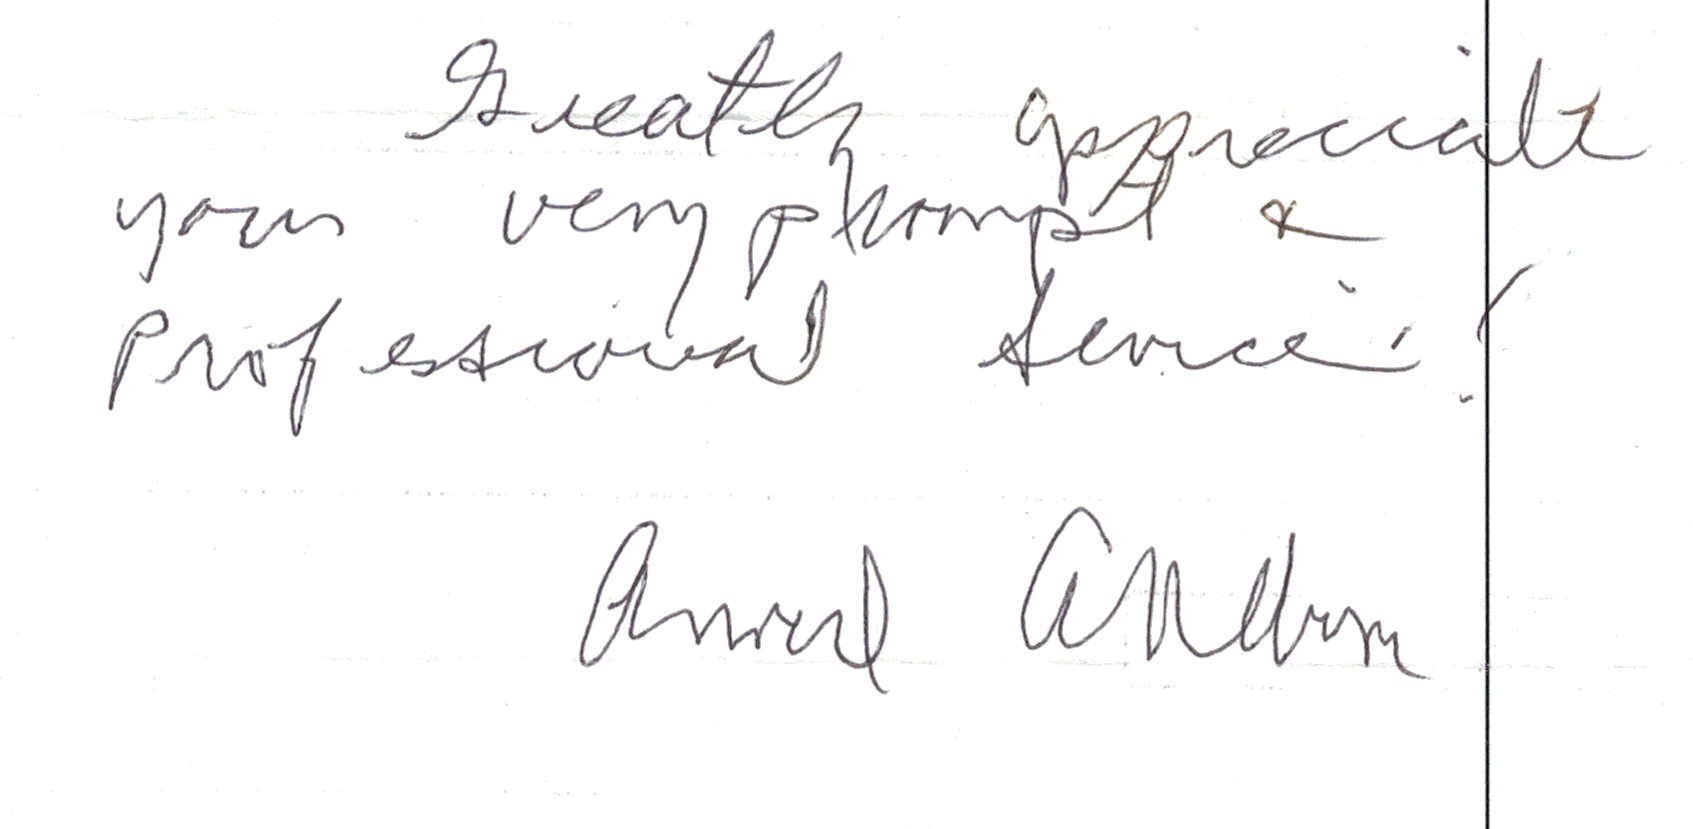 Greatly appreciate
your very prompt &
Professional Service!